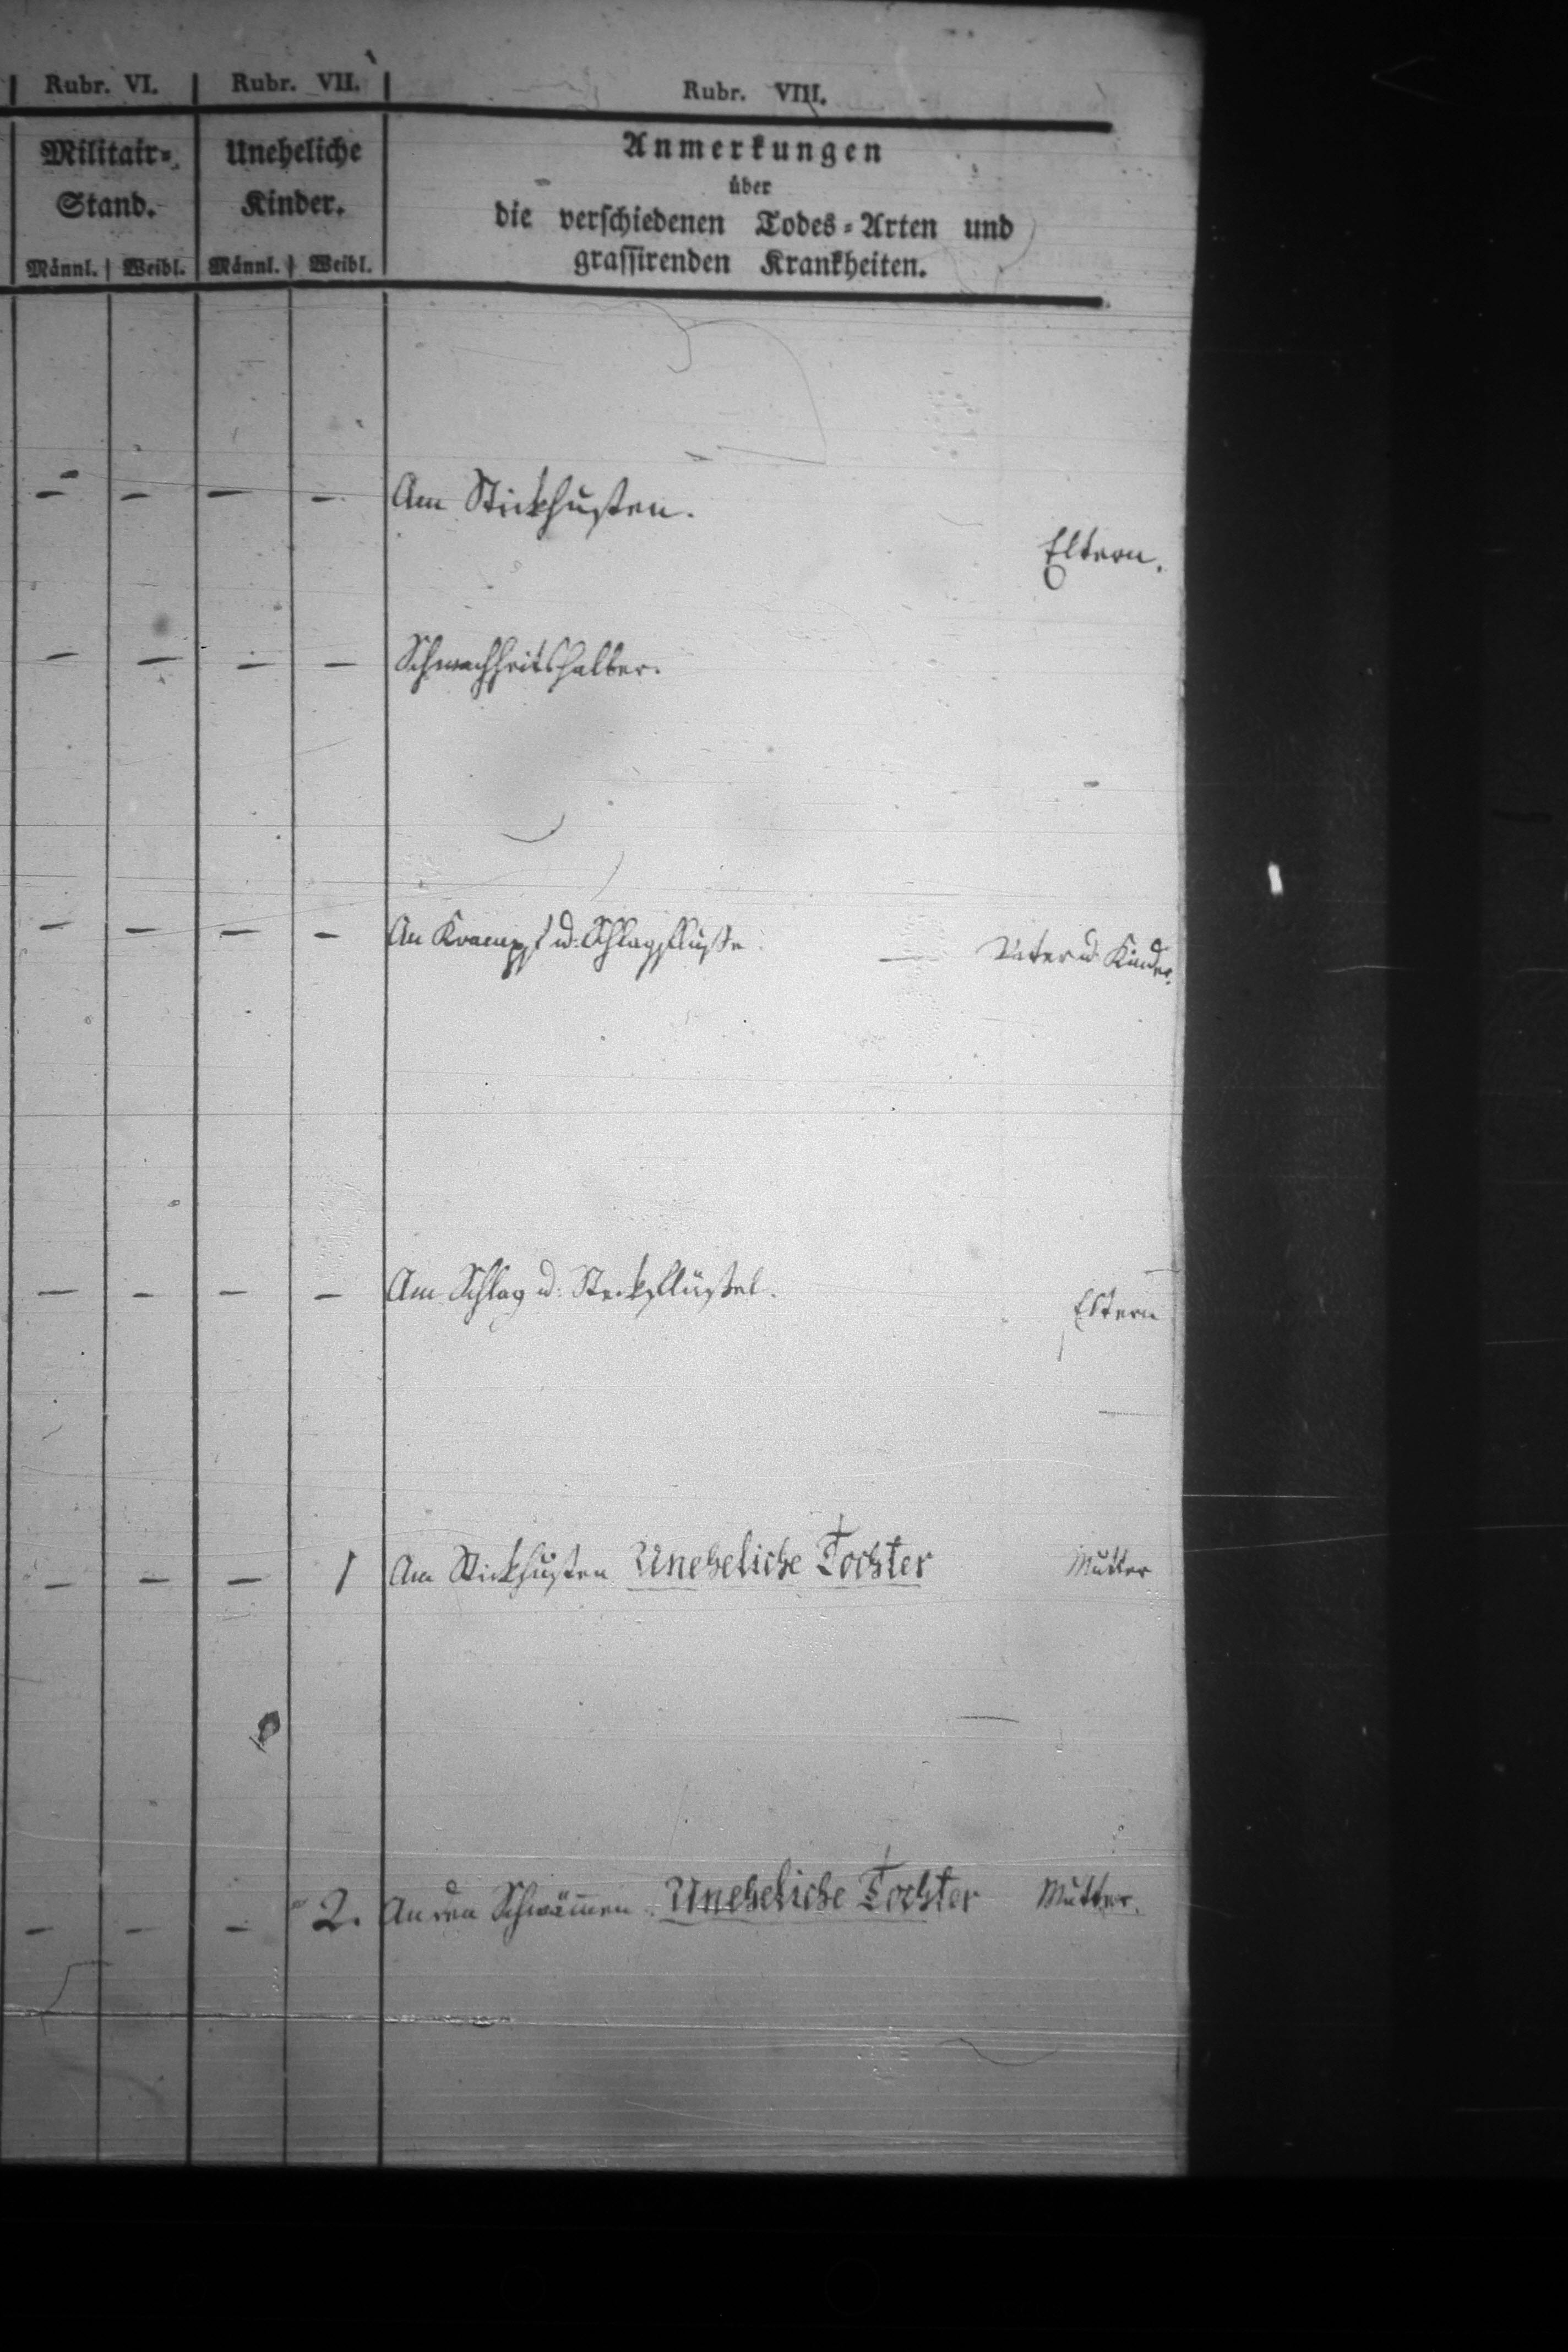 Rubr. VI. Rubr. VII. Rubr. VIII.
Militair= Uneheliche Anmerkungen
über
Stand. Kinder. die verschiedenen Todes=Arten und
Männl. Weibl. Männl. Weibl. grassirenden Krankheiten.
– – – – Am Stickhusten.
Eltern.
– – – – Schwachheitshalber.
– – – – An Krampf u. Schlagfluße. — Vater u. Kinder.
– – – – Am Schlag u. Steckflüßel.
Eltern
– – – 1 Am Stickhusten Uneheliche Tochter Mutter
– – – 2. An den Schwämmen. Uneheliche Tochter Mutter.